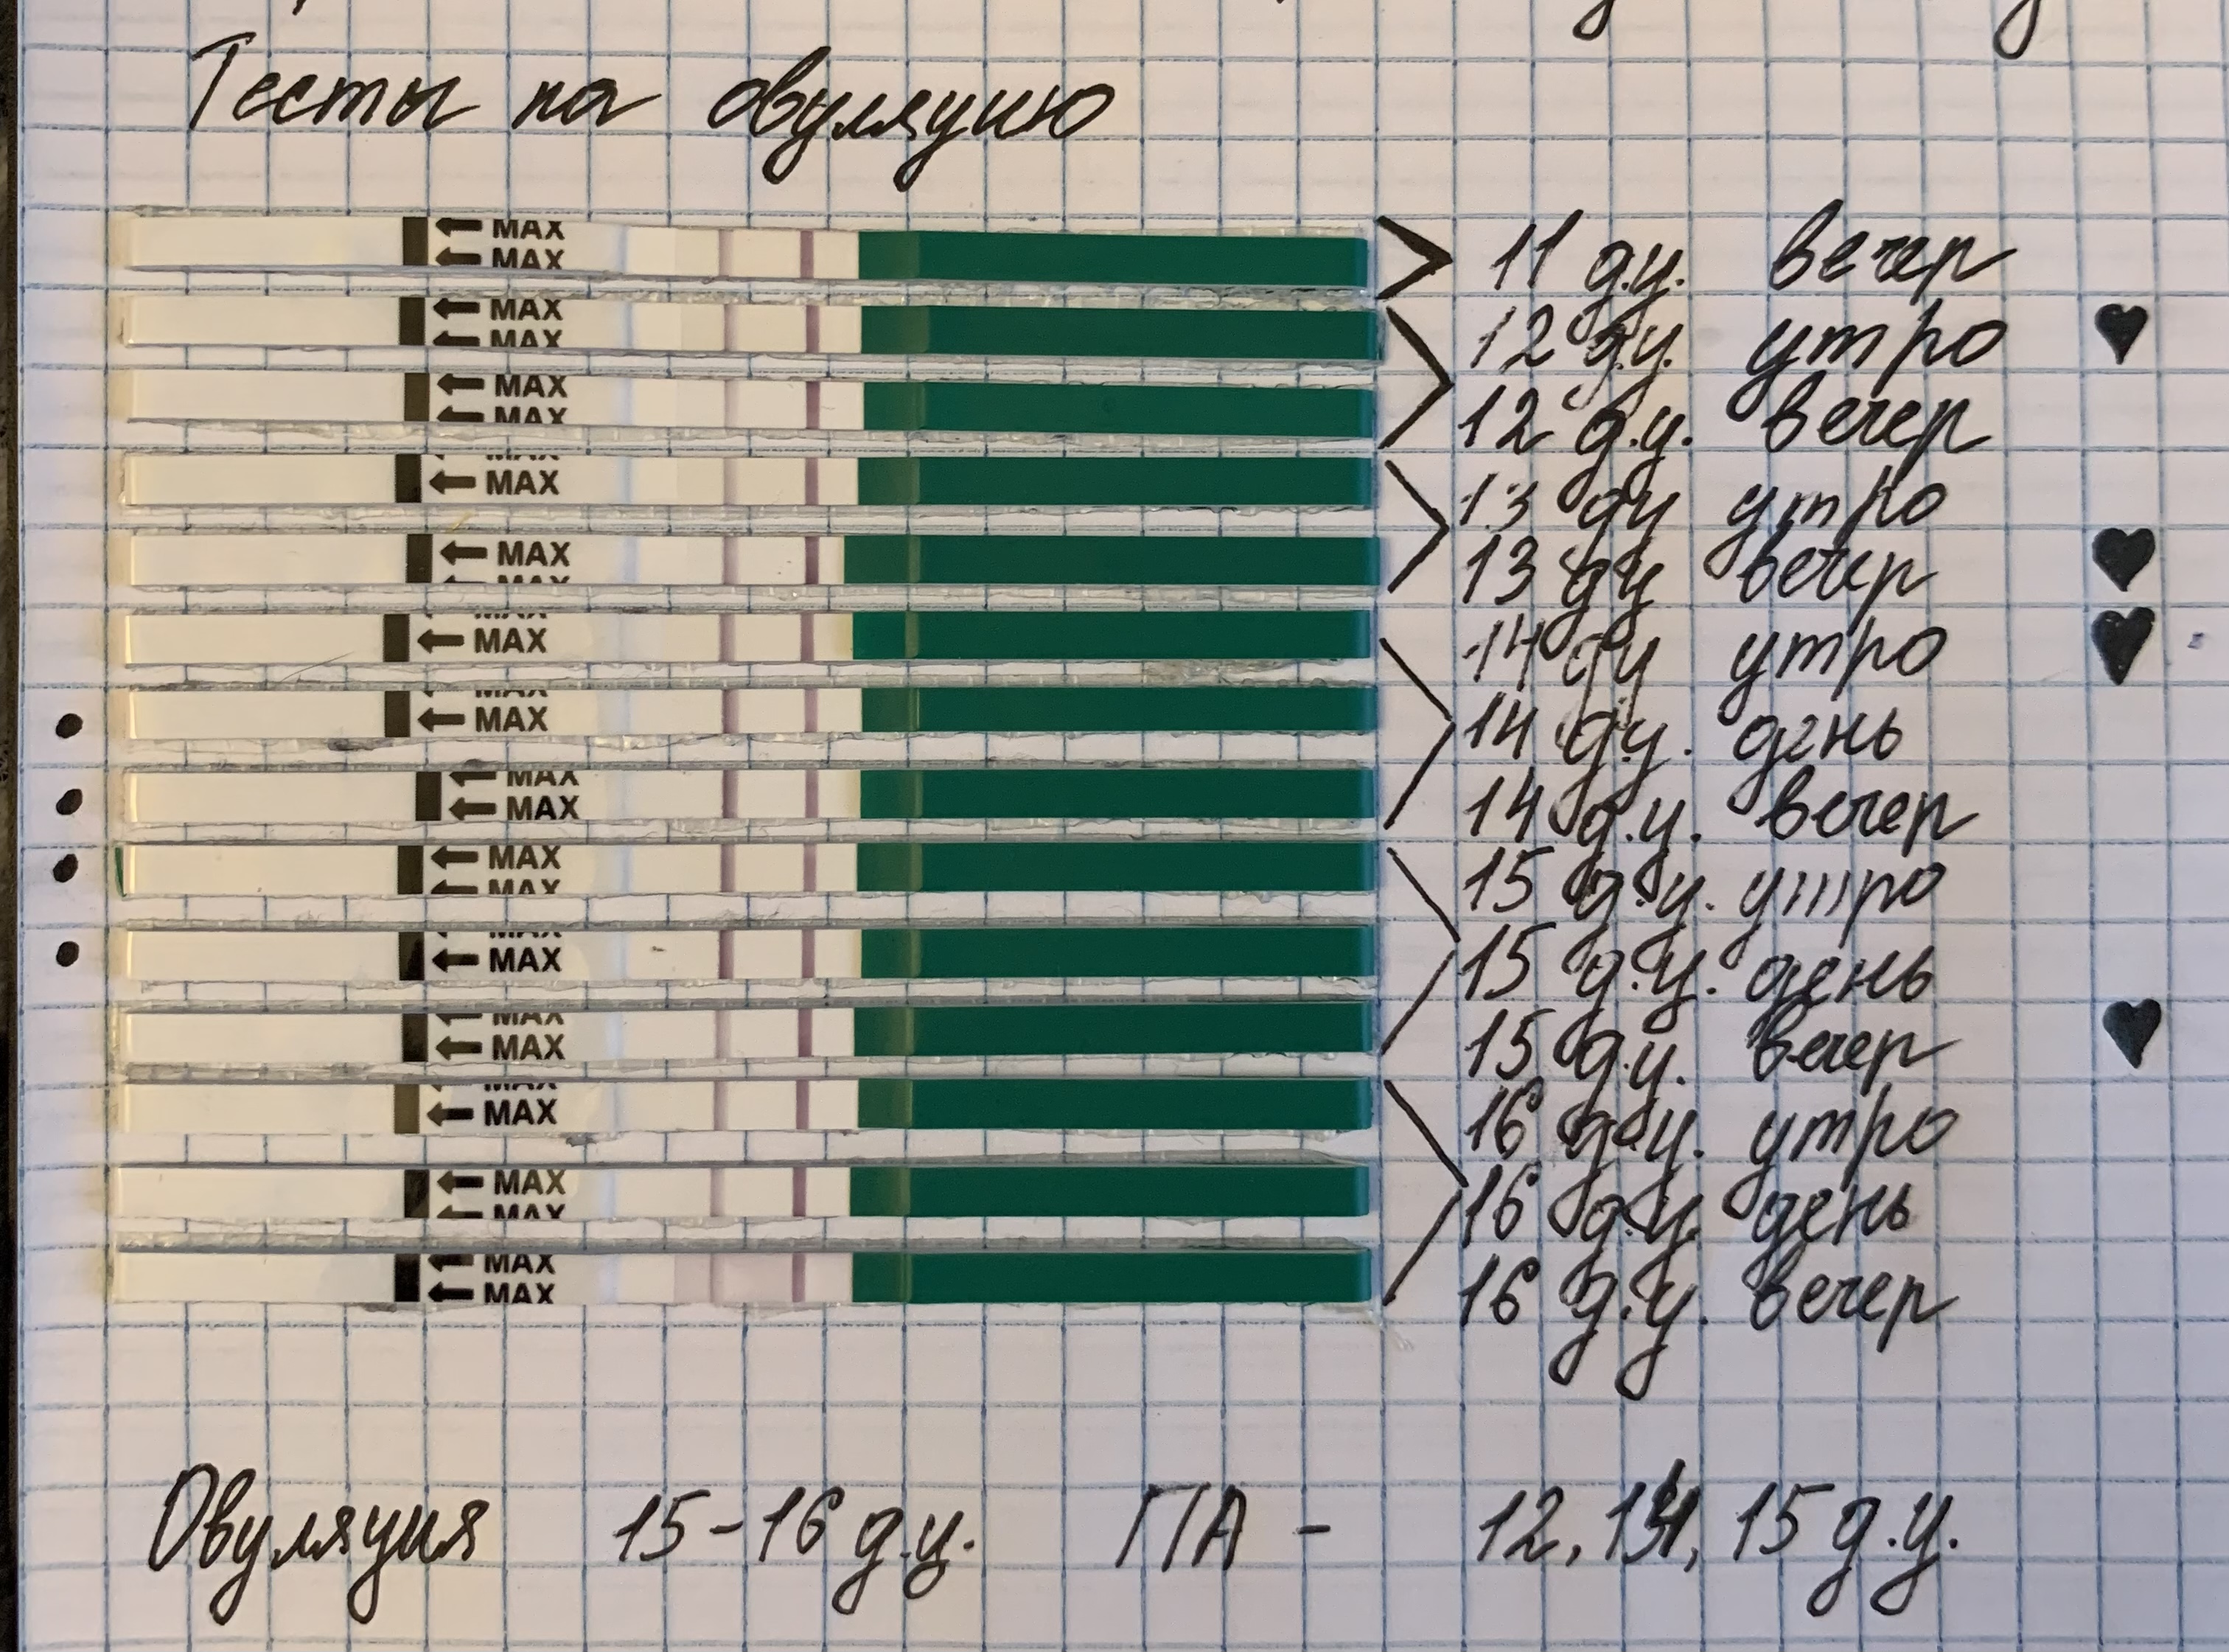 Тесты на овуляцию
MAX MAX 11 д.ц. вечер
MAX MAX 12 д.ц. утро ♥
MAX MAX 12 д.ц. вечер
MAX MAX 13 дц утро
MAX MAX 13 дц вечер ♥
MAX MAX 14 дц утро ♥
• MAX MAX 14 дц. день
• MAX MAX 14 д.ц. вечер
• MAX MAX 15 д.ц. утро
• MAX MAX 15 д.ц. день
MAX MAX 15 д.ц. вечер ♥
MAX MAX 16 д.ц. утро
MAX MAX 16 д.ц. день
MAX MAX 16 д.ц. вечер
Овуляция 15-16 д.ц. ПА - 12, 14, 15 д.ц.